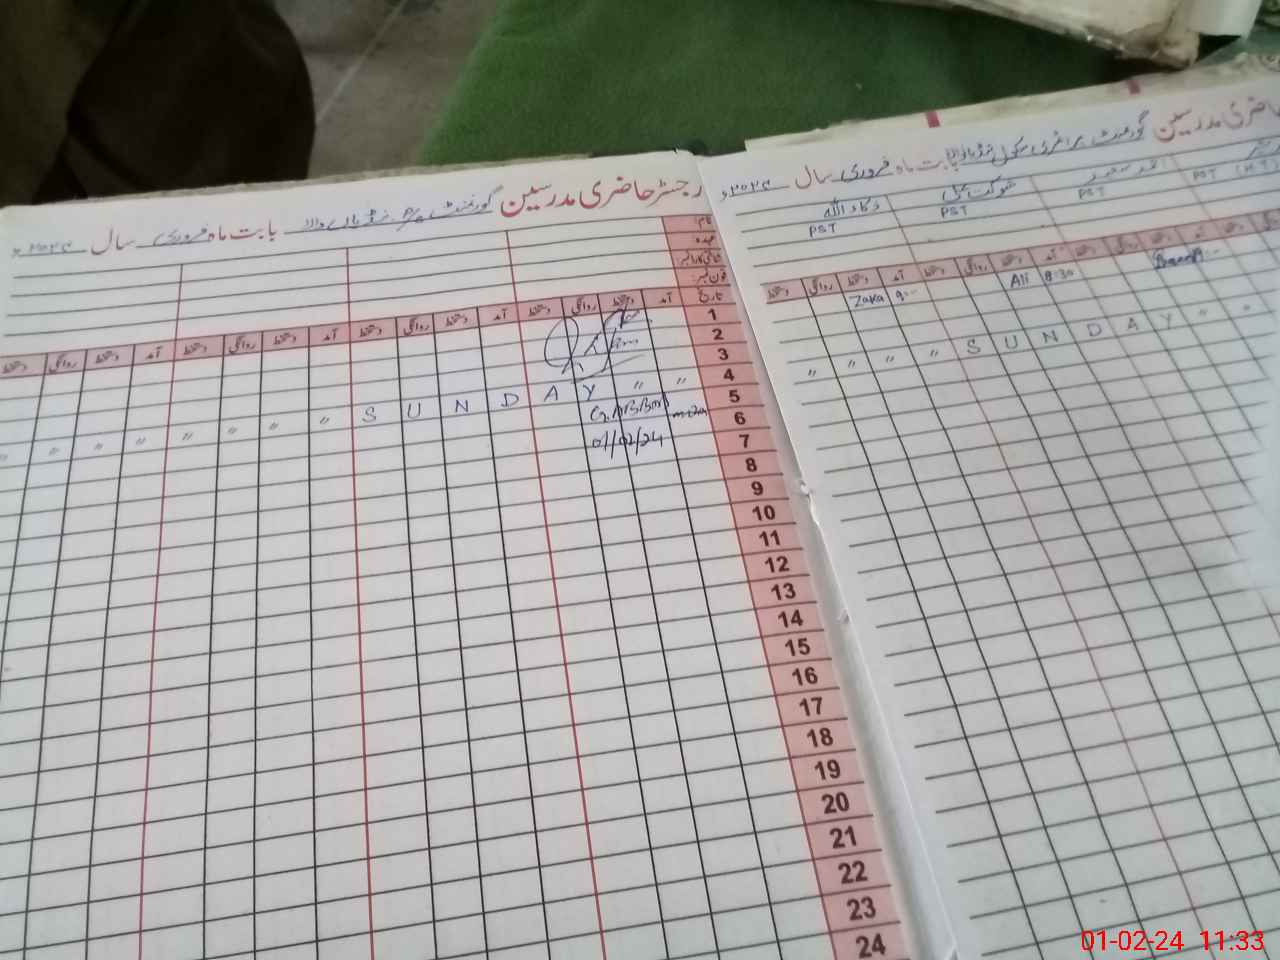 رجسٹر حاضری مدرسین گورنمنٹ بابت ماہ فروری سال ۲۰۲۴ء
نام
عہدہ
شناختی کارڈ نمبر
فون نمبر
تاریخ آمد دستخط روانگی دستخط آمد دستخط روانگی دستخط آمد دستخط روانگی دستخط آمد دستخط روانگی دستخط
1
2
3
4 " " S U N D A Y " " " " " " " "
5 G. ABBAS
6 01/02/24
7
8
9
10
11
12
13
14
15
16
17
18
19
20
21
22
23
24
حاضری مدرسین گورنمنٹ پرائمری سکول بابت ماہ فروری سال ۲۰۲۴ء
شوکت علی ذکاء اللہ
PST (H.T) PST PST PST
روانگی دستخط آمد دستخط روانگی دستخط آمد دستخط روانگی دستخط آمد دستخط روانگی دستخط
Zaka 9:- Ali 8:30
" " " S U N D A Y " "
01-02-24 11:33